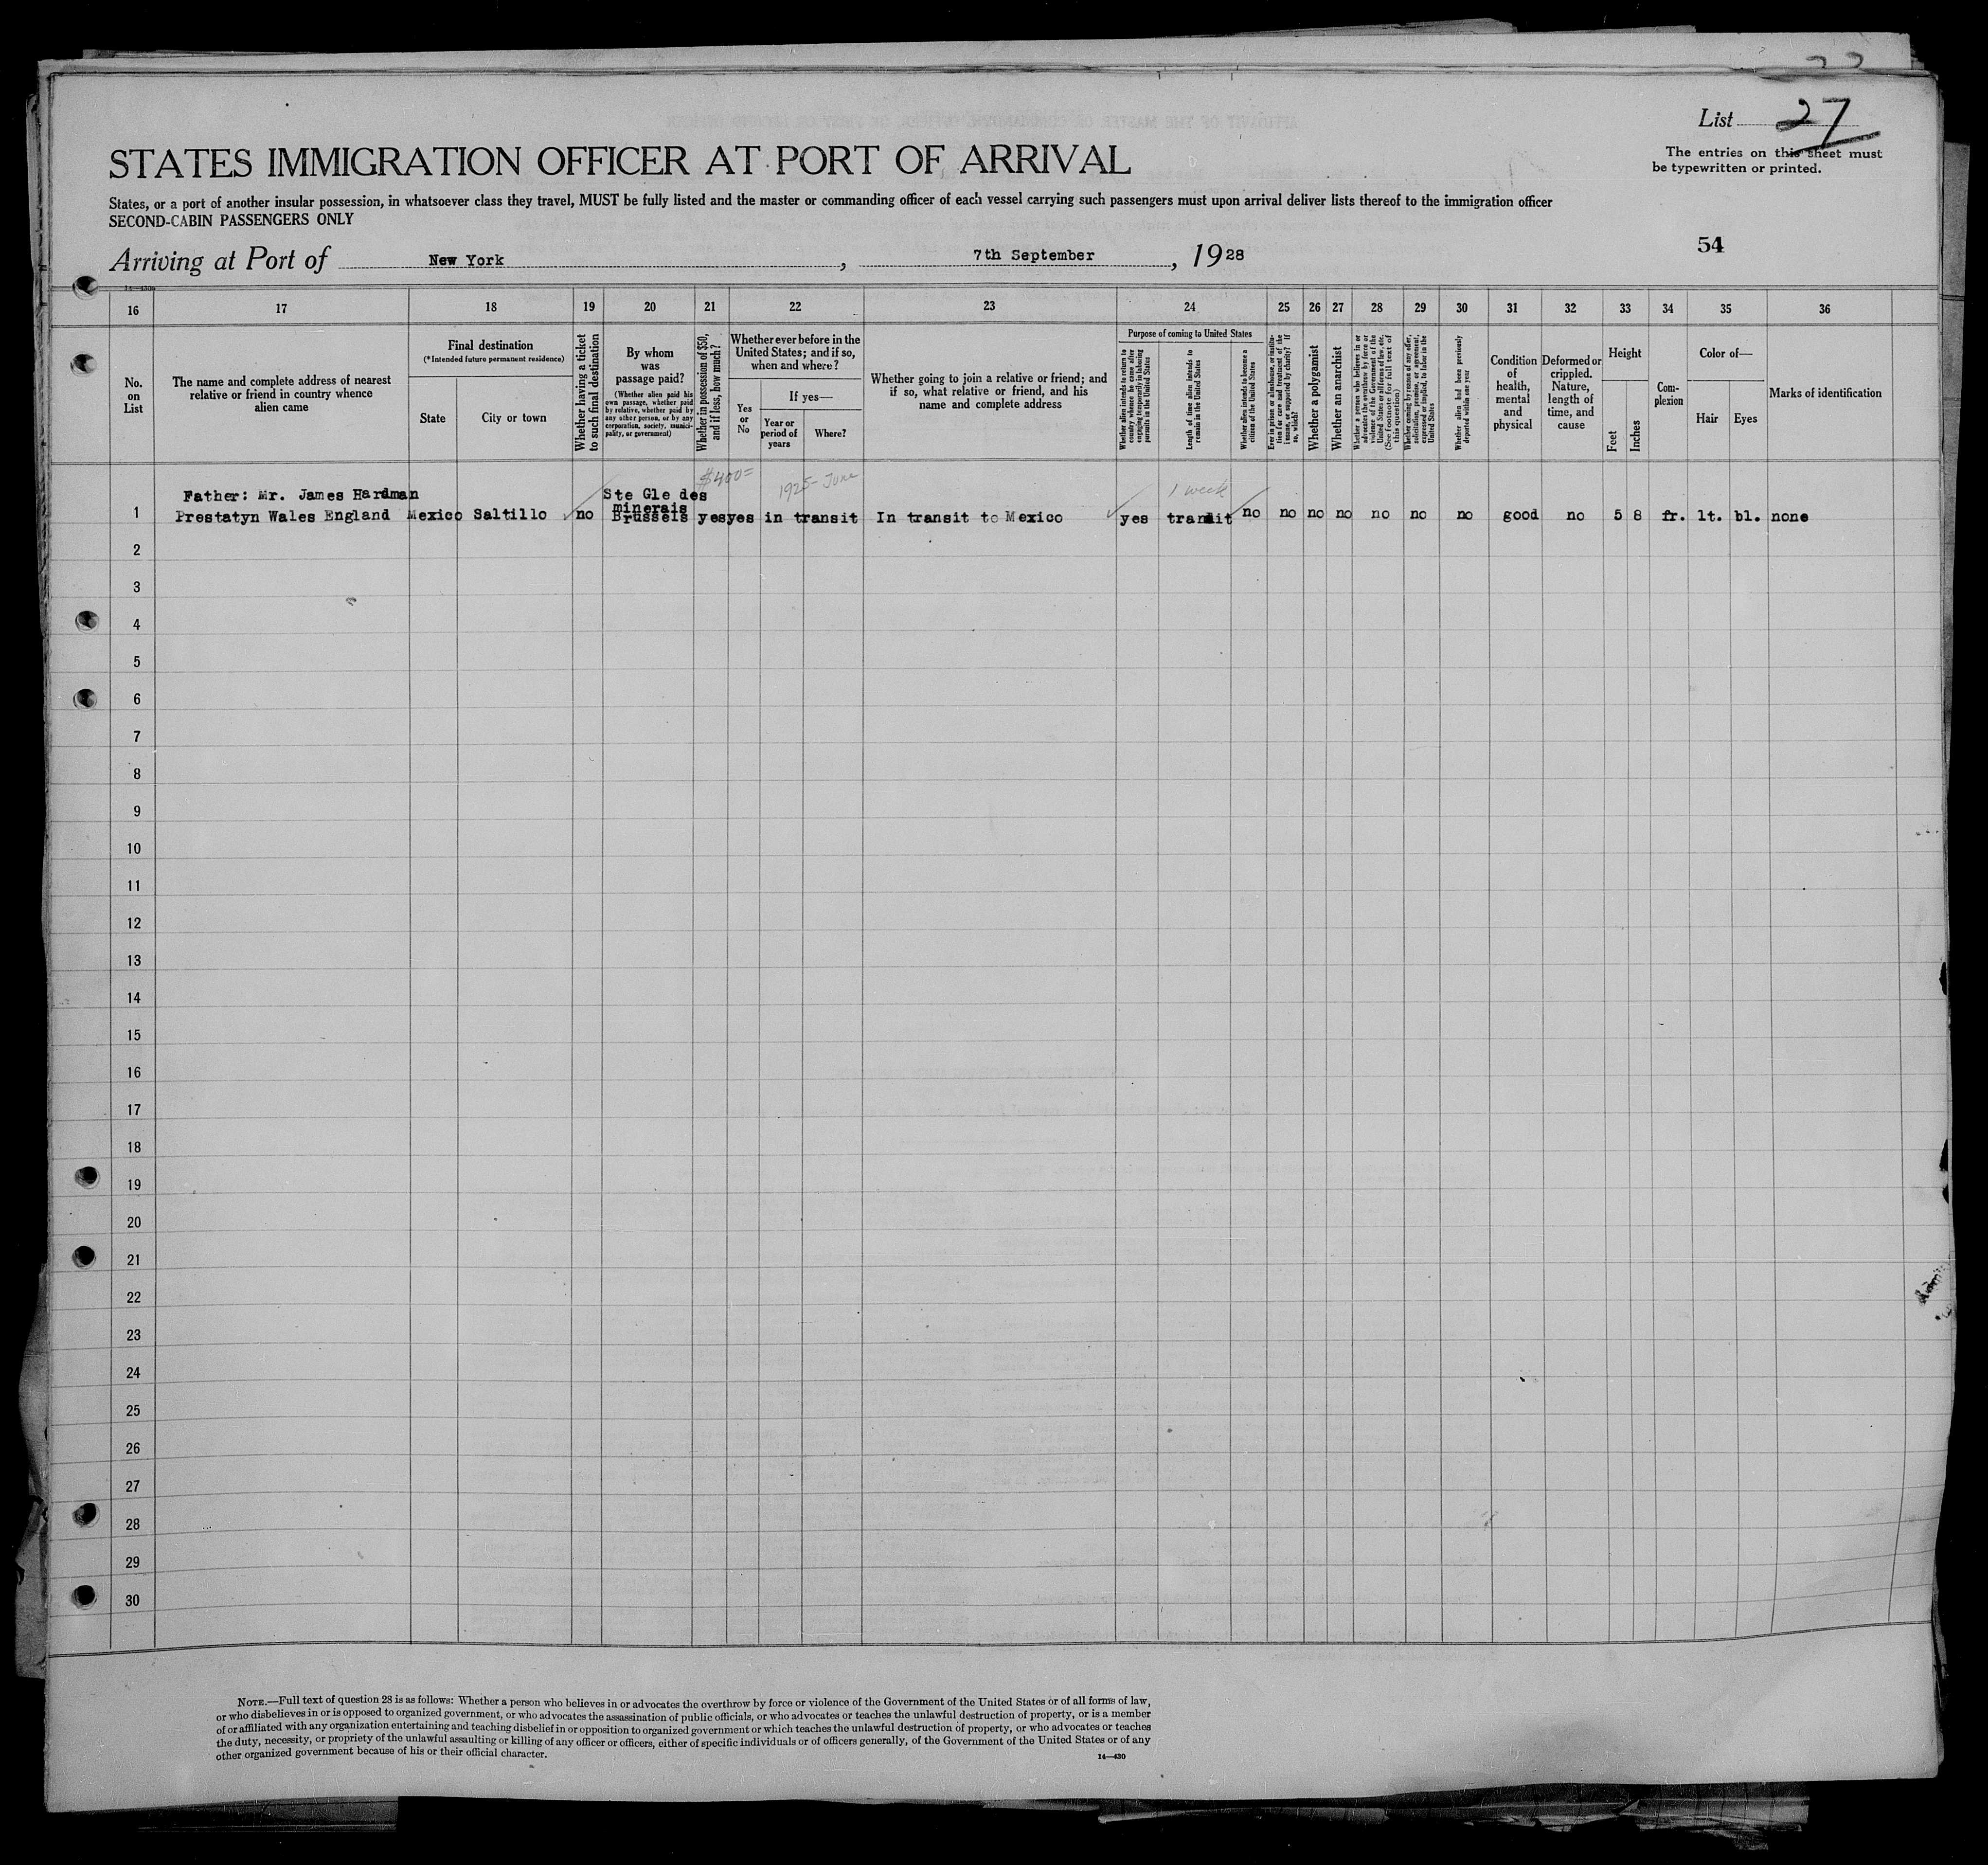 List 27
The entries on this sheet must
be typewritten or printed.
STATES IMMIGRATION OFFICER AT PORT OF ARRIVAL
States, or a port of another insular possession, in whatsoever class they travel, MUST be fully listed and the master or commanding officer of each vessel carrying such passengers must upon arrival deliver lists thereof to the immigration officer
SECOND-CABIN PASSENGERS ONLY
54
Arriving at Port of New York, 7th September, 1928
16 17 18 19 20 21 22 23 24 25 26 27 28 29 30 31 32 33 34 35 36
No. on List
The name and complete address of nearest relative or friend in country whence alien came
Final destination
(*Intended future permanent residence)
State
City or town
Whether having a ticket to such final destination
By whom was passage paid?
(Whether alien paid his own passage, whether paid by relative, whether paid by any other person, or by any corporation, society, municipality, or government)
Whether in possession of $50, and if less, how much?
Whether ever before in the United States; and if so, when and where?
Yes or No
If yes—
Year or period of years
Where?
Whether going to join a relative or friend; and if so, what relative or friend, and his name and complete address
Purpose of coming to United States
Whether alien intends to return to country whence he came after engaging temporarily in laboring pursuits in the United States
Length of time alien intends to remain in the United States
Whether alien intends to become a citizen of the United States
Ever in prison or almshouse, or institution for care and treatment of the insane, or supported by charity? If so, which?
Whether a polygamist
Whether an anarchist
Whether a person who believes in or advocates the overthrow by force or violence of the Government of the United States or all forms of law, etc. (See footnote for full text of this question)
Whether coming by reason of any offer, solicitation, promise, or agreement, expressed or implied, to labor in the United States
Whether alien had been previously deported within one year
Condition of health, mental and physical
Deformed or crippled. Nature, length of time, and cause
Height
Feet
Inches
Complexion
Color of—
Hair
Eyes
Marks of identification
$400=
1925- June
1 week
Father: Mr. James Hardman
Ste Gle des
minerais
1 Prestatyn Wales England Mexico Saltillo no Brussels yes yes in transit In transit to Mexico yes transit no no no no no no no good no 5 8 fr. lt. bl. none
2
3
4
5
6
7
8
9
10
11
12
13
14
15
16
17
18
19
20
21
22
23
24
25
26
27
28
29
30
NOTE.—Full text of question 28 is as follows: Whether a person who believes in or advocates the overthrow by force or violence of the Government of the United States or of all forms of law,
or who disbelieves in or is opposed to organized government, or who advocates the assassination of public officials, or who advocates or teaches the unlawful destruction of property, or is a member
of or affiliated with any organization entertaining and teaching disbelief in or opposition to organized government or which teaches the unlawful destruction of property, or who advocates or teaches
the duty, necessity, or propriety of the unlawful assaulting or killing of any officer or officers, either of specific individuals or of officers generally, of the Government of the United States or of any
other organized government because of his or their official character.
14—430